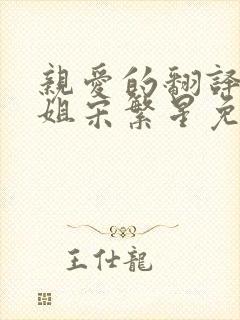 親愛的翻譯
姐宋繁星免
王仕龍